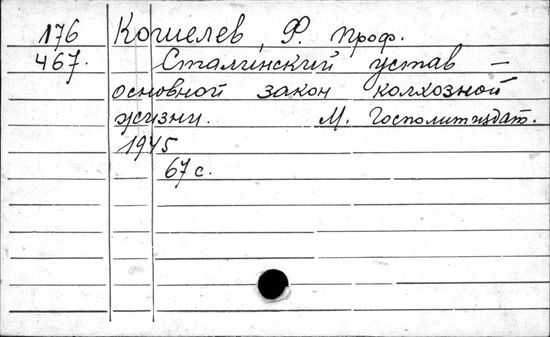 176 Кошелев, Ф. проф.
467. Сталинский устав –
основной закон колхозной
жизни. М. Госполитиздат.
1945
67 с.